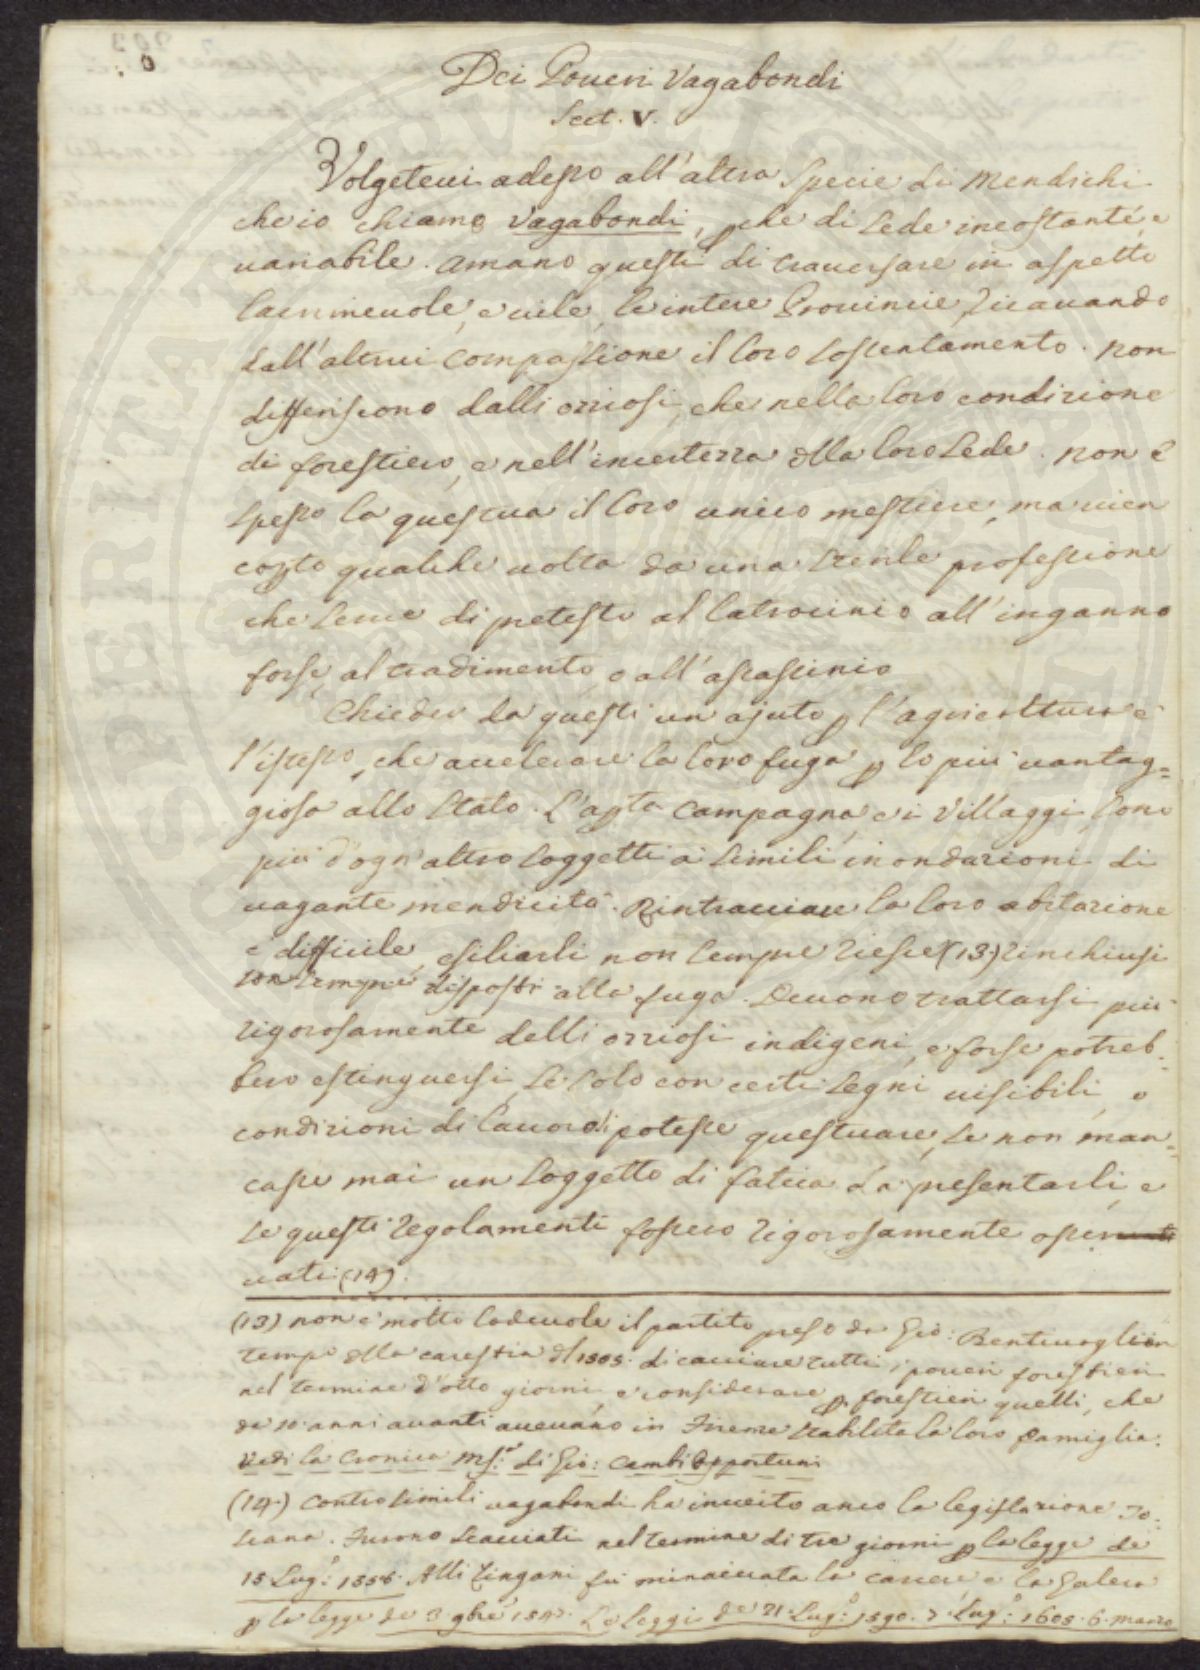 Dei Poveri Vagabondi
Sect. V.
Volgetevi adesso all'altra Specie di Mendichi
che io chiamo Vagabondi, perche di sede incostante, e
variabile. Amano questi di traversare in aspetto
lacrimevole, e vile, le intere Provincie, ricavando
dall'altrui compassione il loro sostentamento. Non
differiscono dalli oziosi, che nella loro condizione
di forestiero, e nell'incertezza della loro sede. Non è
spesso la questua il loro unico mestiere, ma vien
qualche volta da una sterile professione
che serve di pretesto al latrocinio all'inganno
forse, al tradimento, o all'assassinio
Chieder da questi un ajuto per l'agricoltura è
l'istesso, che accelerare la loro fuga per lo più vantag=
giosa allo Stato. L'aperta campagna, e i Villaggi sono
più d'ogn'altro soggetti a simili inondazioni di
vagante mendicità. Rintracciare la loro abitazione
è difficile, esiliarli non sempre riesce (13) rinchiusi
son sempre disposti alla fuga. Devono trattarsi più
rigorosamente delli oziosi indigeni, e forse potreb=
bero estinguersi, se solo con certi segni visibili, e
condizioni di lavoro si potesse questuare, se non man=
casse mai un soggetto di fatica da presentarli, e
se questi regolamenti fossero rigorosamente osser
vati (14).
(13) non è molto lodevole il partito preso da Gio: Bentivoglio in
tempo della carestia del 1505. di cacciare tutti i poveri forestieri
nel termine d'otto giorni, e considerare per forestieri quelli, che
da 10. anni avanti avevano in Firenze stabilita la loro famiglia.
Vedi la Cronica Ms. di Gio: Cambi
(14.) Contro simili vagabondi ha inveito anco la legislazione To=
scana. Furono scacciati nel termine di tre giorni per la legge de
15 Lug: 1556. Alli Zingani fu minacciata la carcere, e la Galera
per la legge de 3 9bre 1547. Le Leggi de 21. Lug: 1590. 2 Lug: 1605. 6. Marzo